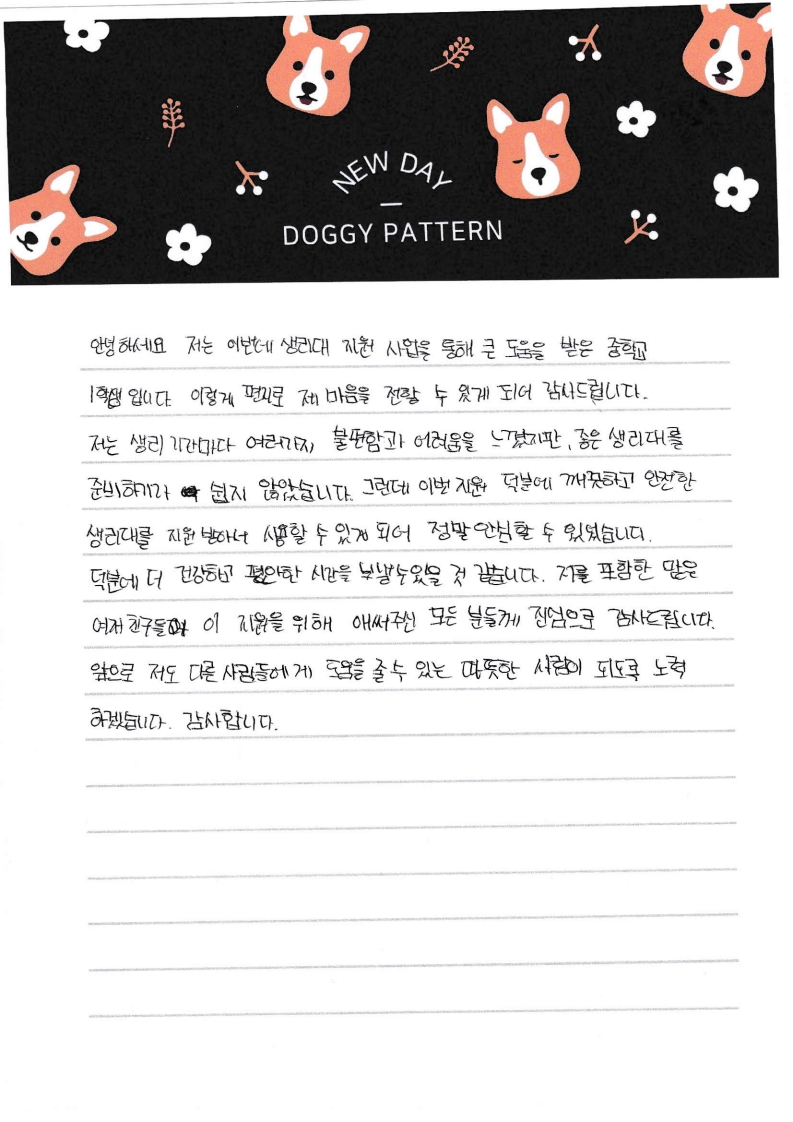 NEW DAY
DOGGY PATTERN
안녕하세요 저는 이번에 생리대 지원 사업을 통해 큰 도움을 받은 중학교
1학생 입니다 이렇게 편지로 제 마음을 전할 수 있게 되어 감사드립니다.
저는 생리 기간마다 여러가지 불편함과 어려움을 느꼈지만, 좋은 생리대를
준비하기가 쉽지 않았습니다. 그런데 이번 지원 덕분에 깨끗하고 안전한
생리대를 지원 받아서 사용할 수 있게 되어 정말 안심할 수 있었습니다.
덕분에 더 건강하고 편안한 시간을 보낼수있을 것 같습니다. 저를 포함한 많은
여자 친구들이 이 지원을 위해 애써주신 모든 분들께 진심으로 감사드립니다.
앞으로 저도 다른 사람들에게 도움을 줄수 있는 따뜻한 사람이 되도록 노력
하겠습니다. 감사합니다.